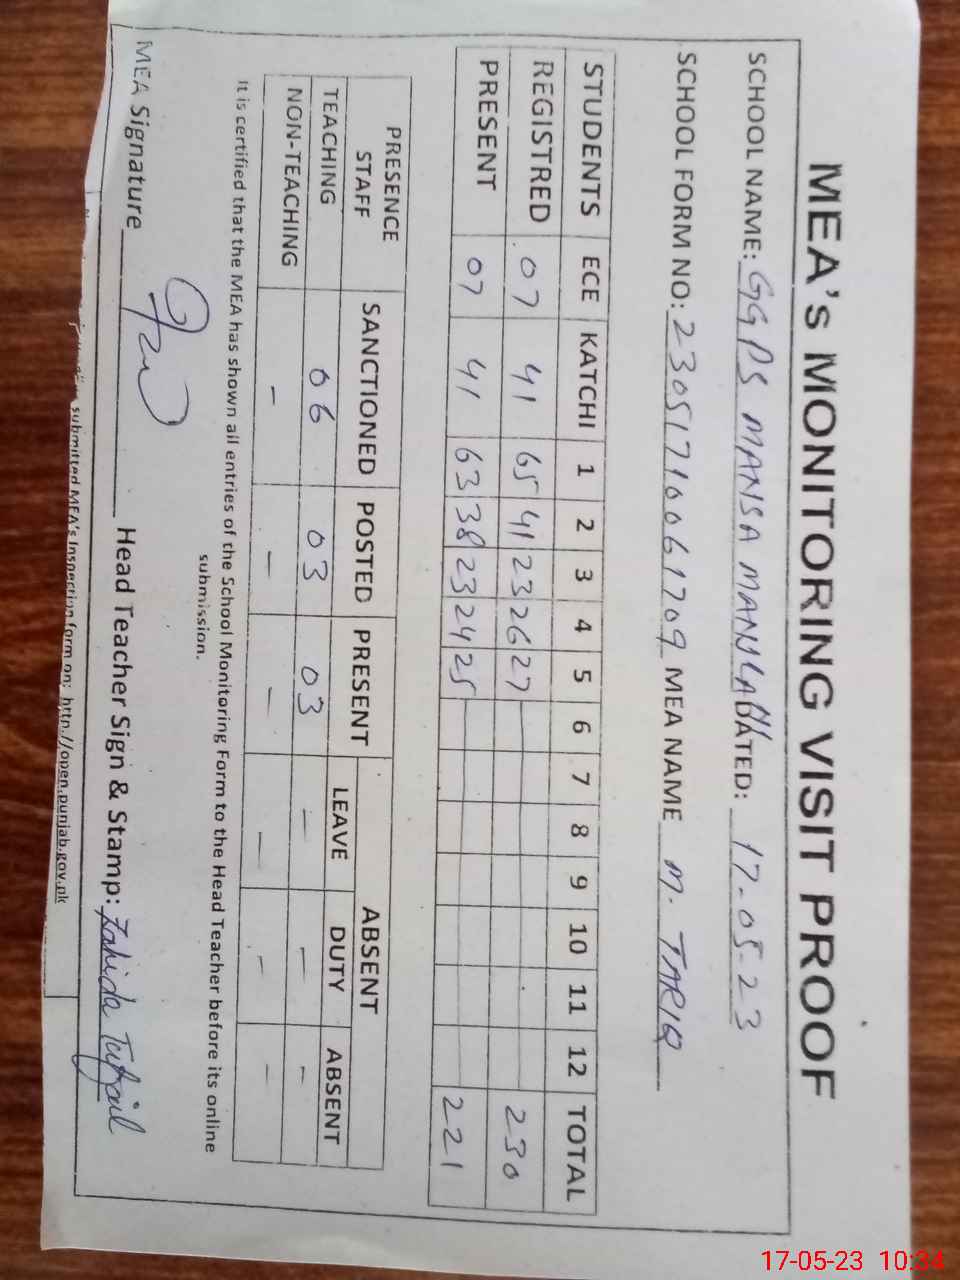 MEA's MONITORING VISIT PROOF
SCHOOL NAME: GGPS MANSA MANYLA DATED: 17-05-23
SCHOOL FORM NO: 23051710061709 MEA NAME M. TARIQ
STUDENTS ECE KATCHI 1 2 3 4 5 6 7 8 9 10 11 12 TOTAL
REGISTRED 07 41 65 41 23 26 27 230
PRESENT 07 41 63 38 23 24 25 221
PRESENCE STAFF SANCTIONED POSTED PRESENT ABSENT
LEAVE DUTY ABSENT
TEACHING 06 03 03 - - -
NON-TEACHING - - - - - -
It is certified that the MEA has shown all entries of the School Monitoring Form to the Head Teacher before its online
submission.
MEA Signature Head Teacher Sign & Stamp: Zahida Tufail
submitted MEA's Inspection form on: http://open.punjab.gov.pk
17-05-23 10:34